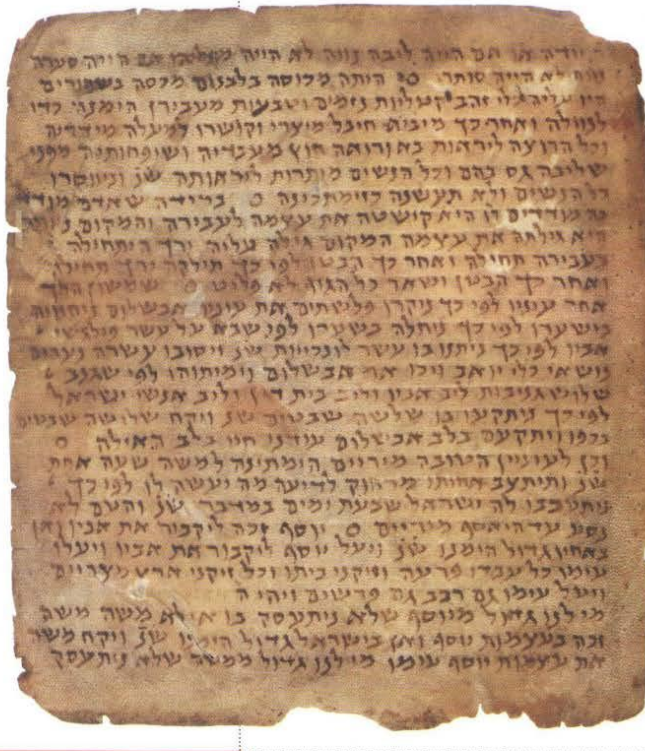 יודה או אם הייה ליבה נווה לא הייה מגלהו אם הייה סערה
נווה לא הייה סותרו ׃ היתה מכוסה בלבנום מכסה בשחורים
היו עליה כלי זהב קטליות נזמים וטבעות מעבירן הימנה כדי
לנוולה ואחר כך מיביא חיבל מיצרי וקושרו למעלה מידדיה
וכל הרוצה ליראות בא ורואה חוץ מעבדיה ושופחותיה מפני
שליבה גס בהם וכל הנשים מותרות ליראותה שנ׳ וניווסרו
כל הנשים ולא תעשנה כזימתכינה ׃ במידה שאדם מודד
בה מודדים לו היא קישטה את עצמה לעבירה והמקום ניוולה
היא גילתה את עצמה המקום גילה עליה ירך היתחילה
בעבירה תחילה ואחר כך הבטן לפי כך תילקה ירך תחילה
ואחר כך הבטן ושאר כל הגוף לא פליט ׃ שמשון הלך
אחר עיניו לפי כך ניקרן פלישתים את עיניו אבשלום ניתנווה
בישערו לפי כך ניתלה בשערו לפי שבא על עשר פילגשי
אביו לפי כך ניתנו בו עשר לונכיות שנ׳ ויסובו עשרה נערים
נושאי כלי יואב ויכו את אבשלום וימיתוהו לפי שגנב
שלוש גניבות ליב אביו וליב בית דין וליב אנשי ישראל
לפי כך ניתקעו בו שלשה שבטים שנ׳ ויקח שלושה שבטים
בכפו ויתקעם בלב אבשלום עודנו חי בלב האילה ׃
וכן לעוניין הטובה מיריים המתינה למשה שעה אחת
שנ׳ ותיתצב אחותו מרחוק לדיעה מה יעשה לו לפי כך
ניתעכבו לה ישראל שבעת ימים במדבר שנ׳ והעם לא
נסע עד היאסף מיריים ׃ יוסף זכה ליקבור את אביו ואין
באחיו גדול הימנו שנ׳ ויעל יוסף ליקבור את אביו ויעלו
עימו כל עבדי פרעה זיקני ביתו וכל זיקני ארץ מצריים
ויעל עימו גם רכב גם פרשים ויהי ה
מי לנו גדול מיוסף שלא ניתעסק בו אילא משה משה
זכה בעצמות יוסף ואין בישראל גדול הימינו שנ׳ ויקח משה
את עצמות יוסף עימו מי לנו גדול ממשה שלא ניתעסק